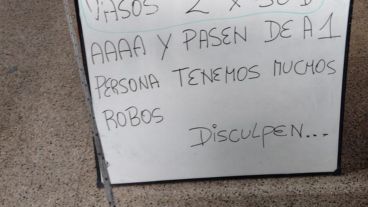 VASOS 2 X 50 B
AAAA Y PASEN DE A 1
PERSONA TENEMOS MUCHOS
ROBOS
DISCULPEN...